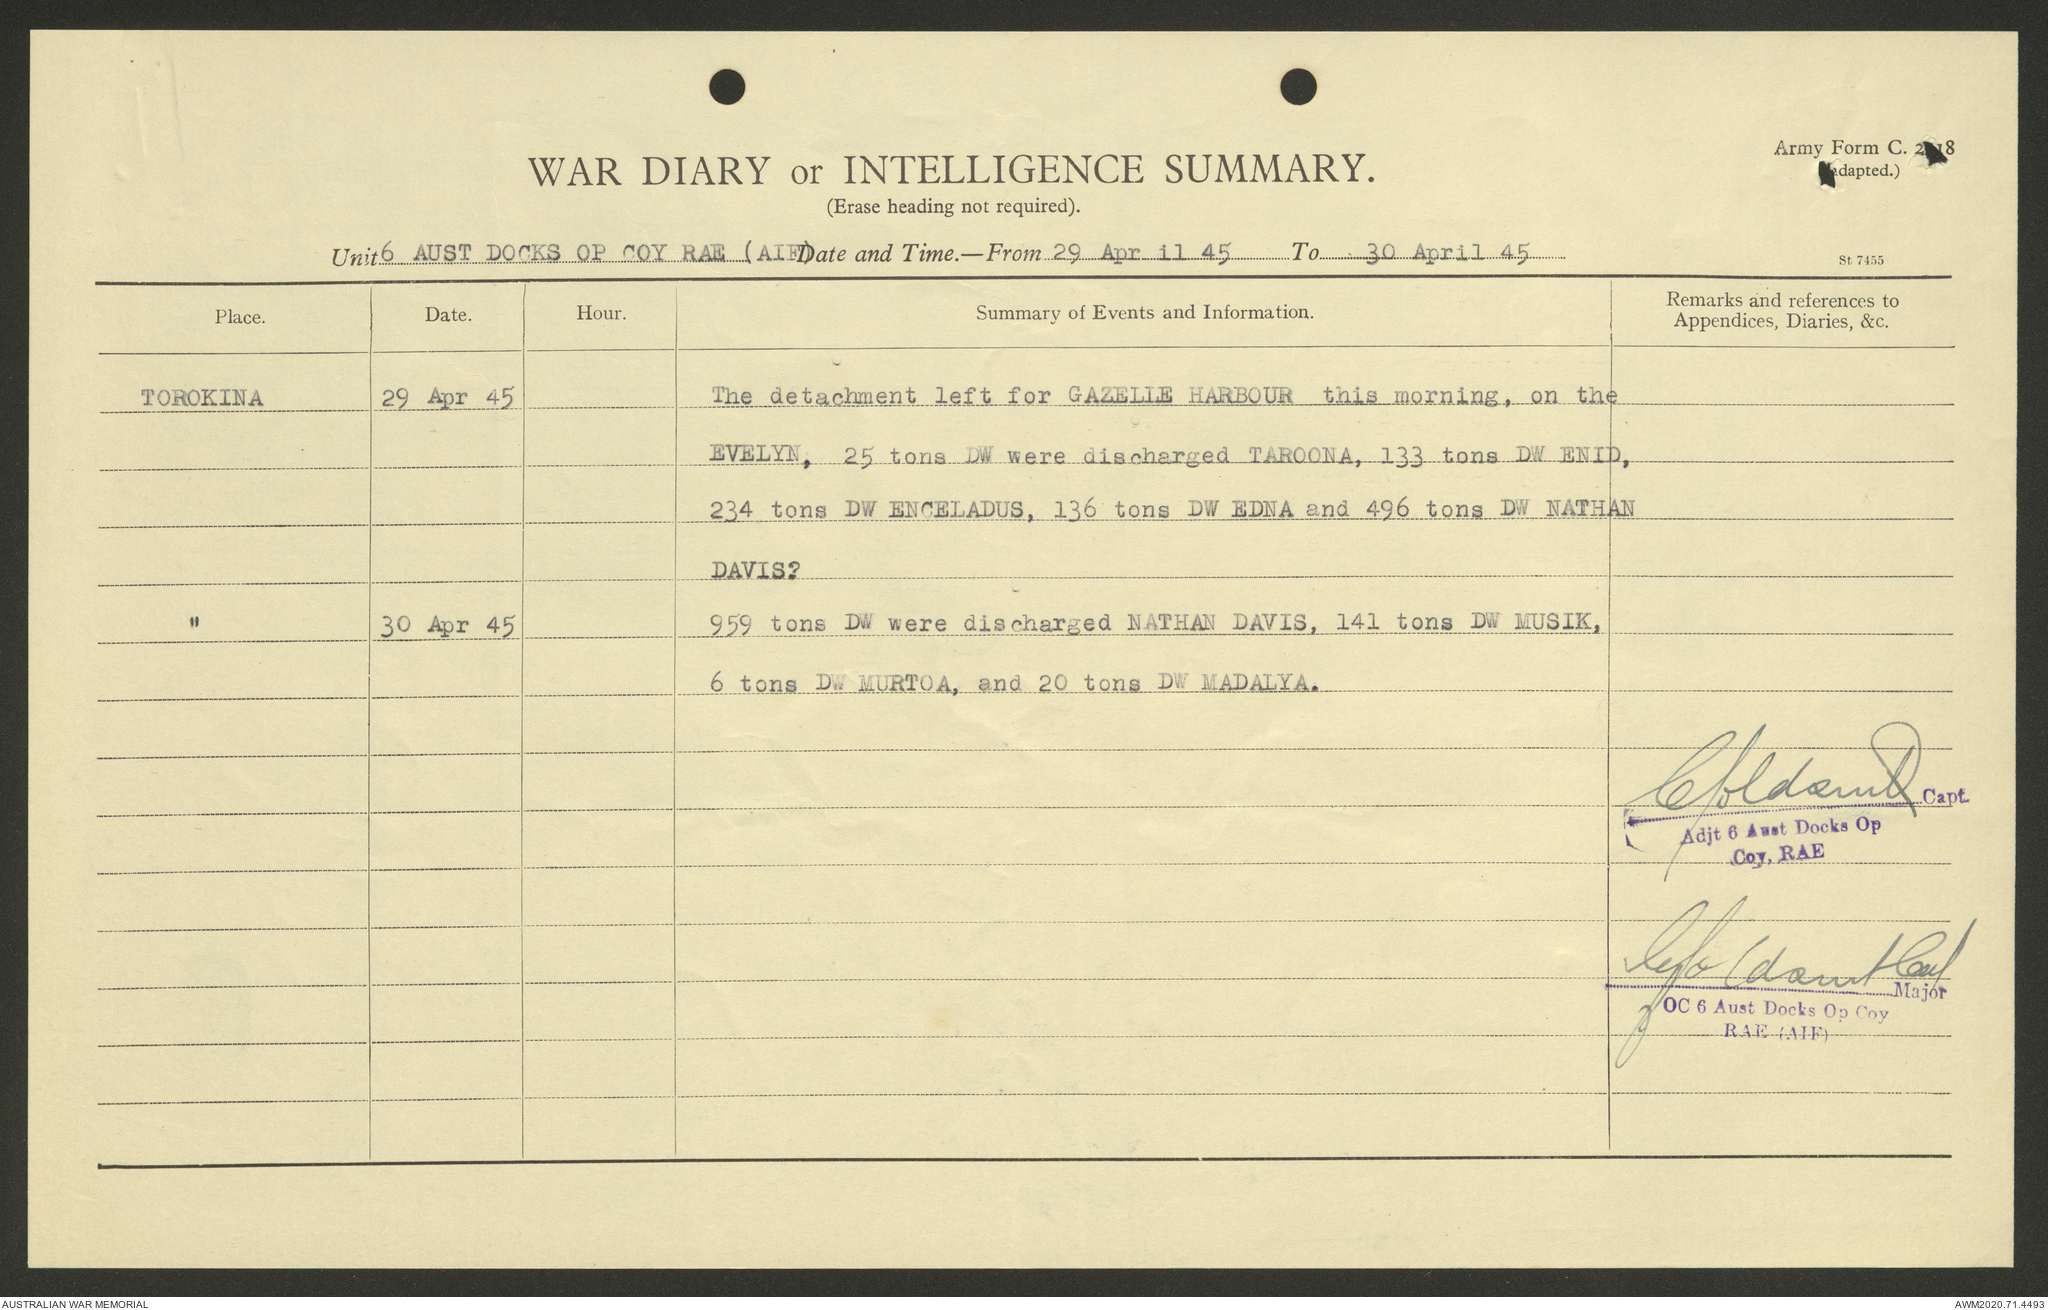 Army Form C. 2118
(Adapted.)
WAR DIARY or INTELLIGENCE SUMMARY.
(Erase heading not required).
Unit 6 AUST DOCKS OP COY RAE (AIF) Date and Time.—From 29 Apr il 45 To 30 April 45
St 7455
Place. Date. Hour. Summary of Events and Information. Remarks and references to
Appendices, Diaries, &c.
TOROKINA 29 Apr 45 The detachment left for GAZELLE HARBOUR this morning, on the
EVELYN, 25 tons DW were discharged TAROONA, 133 tons DW ENID,
234 tons DW ENCELADUS, 136 tons DW EDNA and 496 tons DW NATHAN
DAVIS?
" 30 Apr 45 959 tons DW were discharged NATHAN DAVIS, 141 tons DW MUSIK,
6 tons DW MURTOA, and 20 tons DW MADALYA.
Capt.
Adjt 6 Aust Docks Op
Coy, RAE
Major
OC 6 Aust Docks Op Coy
RAE (AIF)
AUSTRALIAN WAR MEMORIAL
AWM2020.71.4493